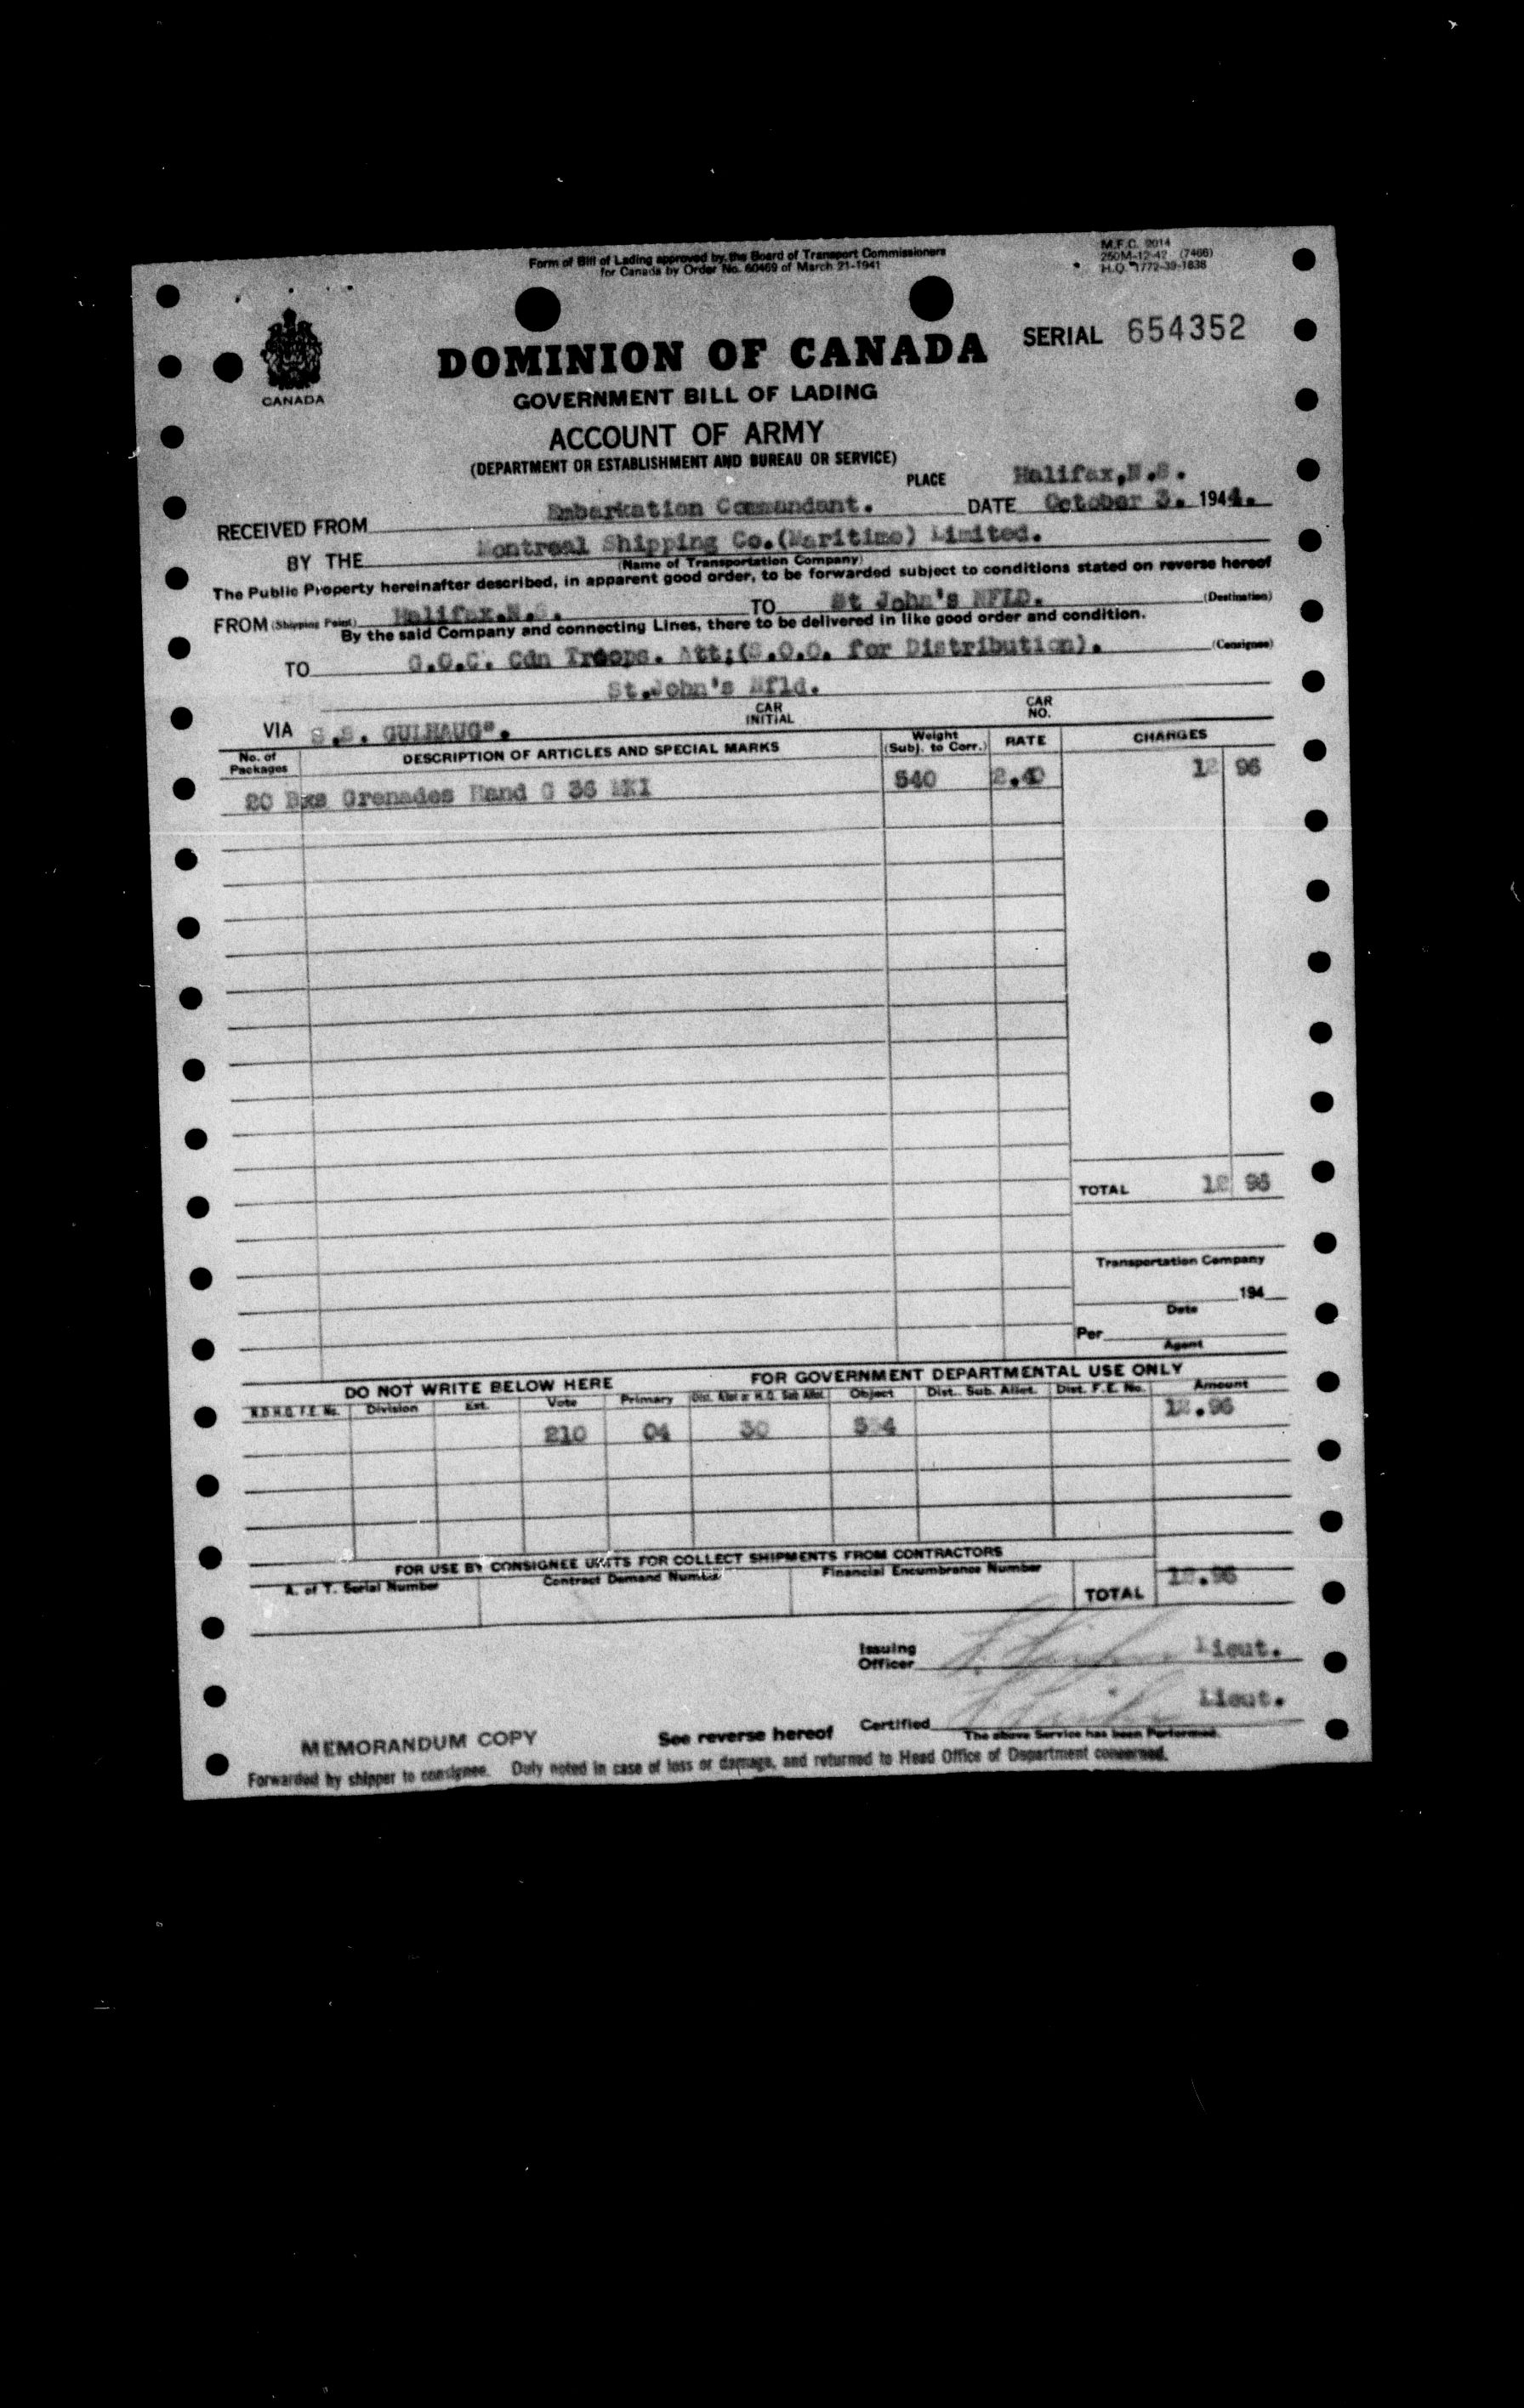 Form of Bill of Lading approved by the Board of Transport Commissioners
for Canada by Order No. 60469 of March 21-1941
M.F.C. 2014
250M-12-42 (7466)
H.Q. 1772-39-1838
CANADA
DOMINION OF CANADA
SERIAL 654352
GOVERNMENT BILL OF LADING
ACCOUNT OF ARMY
(DEPARTMENT OR ESTABLISHMENT AND BUREAU OR SERVICE)
PLACE Halifax,N.S.
RECEIVED FROM Embarkation Commandant. DATE October 3. 1944.
BY THE Montreal Shipping Co.(Maritime) Limited.
(Name of Transportation Company)
The Public Property hereinafter described, in apparent good order, to be forwarded subject to conditions stated on reverse hereof
FROM (Shipping Point) Halifax.N.S. TO St John's NFLD. (Destination)
By the said Company and connecting Lines, there to be delivered in like good order and condition.
TO G.O.C. Cdn Troops. Att;(S.O.O. for Distribution). (Consignee)
St.John's Nfld.
VIA S.S. GULHAUG". CAR INITIAL CAR NO.
No. of Packages DESCRIPTION OF ARTICLES AND SPECIAL MARKS Weight (Subj. to Corr.) RATE CHARGES
20 Bxs Grenades Hand G 36 MKI 540 2.40 12 96
TOTAL 12 96
Transportation Company
194
Date
Per
Agent
DO NOT WRITE BELOW HERE FOR GOVERNMENT DEPARTMENTAL USE ONLY
N.D.H.Q. F.E. No. Division Est. Vote Primary Dist. Allot or H.Q. Sub Allot. Object Dist. Sub. Allot. Dist. F.E. No. Amount
210 04 30 12.96
FOR USE BY CONSIGNEE UNITS FOR COLLECT SHIPMENTS FROM CONTRACTORS
A. of T. Serial Number Contract Demand Number Financial Encumbrance Number TOTAL 12.96
Issuing Officer Lieut.
Certified Lieut.
The above Service has been Performed.
MEMORANDUM COPY See reverse hereof
Forwarded by shipper to consignee. Duly noted in case of loss or damage, and returned to Head Office of Department concerned.